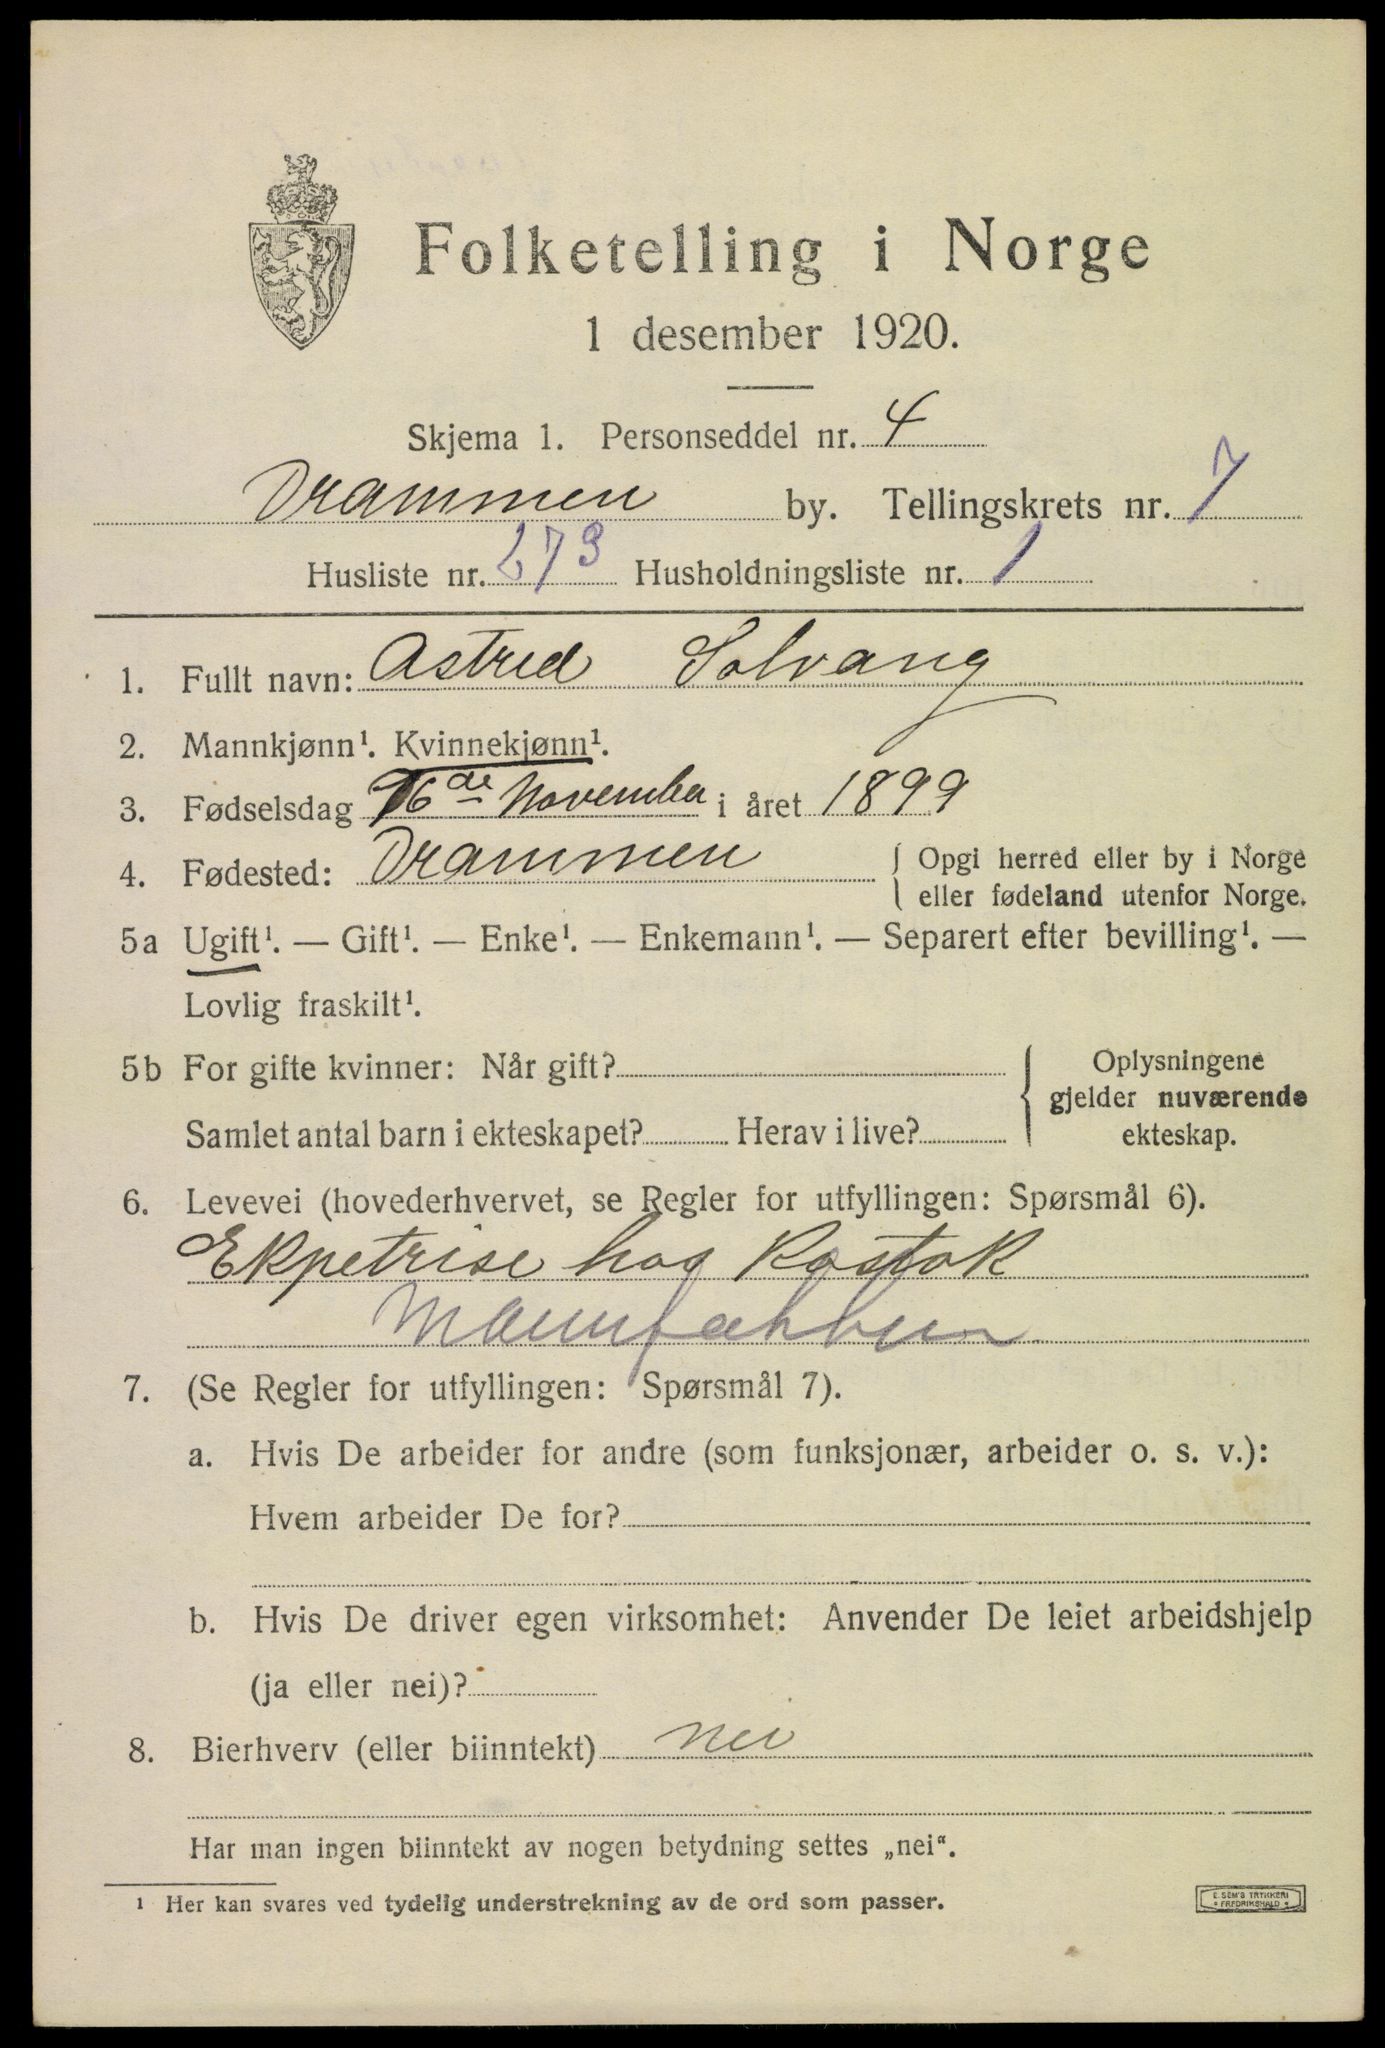 Folketelling i Norge
1 desember 1920.
Skjema 1. Personseddel nr. 4
Drammen by. Tellingskrets nr. 7
Husliste nr. 273 Husholdningsliste nr. 1
1. Fullt navn: Astrid Solvang
2. Mannkjønn¹. Kvinnekjønn¹.
3. Fødselsdag 16de November i året 1899
4. Fødested: Drammen { Opgi herred eller by i Norge
eller fødeland utenfor Norge.
5a Ugift¹. — Gift¹. — Enke¹. — Enkemann¹. — Separert efter bevilling¹. —
Lovlig fraskilt¹.
5b For gifte kvinner: Når gift? { Oplysningene
gjelder nuværende
Samlet antal barn i ekteskapet? Herav i live? ekteskap.
6. Levevei (hovederhvervet, se Regler for utfyllingen: Spørsmål 6).
Ekpetrise hos Rostok
7. (Se Regler for utfyllingen: Spørsmål 7).
a. Hvis De arbeider for andre (som funksjonær, arbeider o. s. v.):
Hvem arbeider De for?
b. Hvis De driver egen virksomhet: Anvender De leiet arbeidshjelp
(ja eller nei)?
8. Bierhverv (eller biinntekt) nei
Har man ingen biinntekt av nogen betydning settes „nei“.
¹ Her kan svares ved tydelig understrekning av de ord som passer.
E. SEM'S TRYKKERI
FREDRIKSHALD